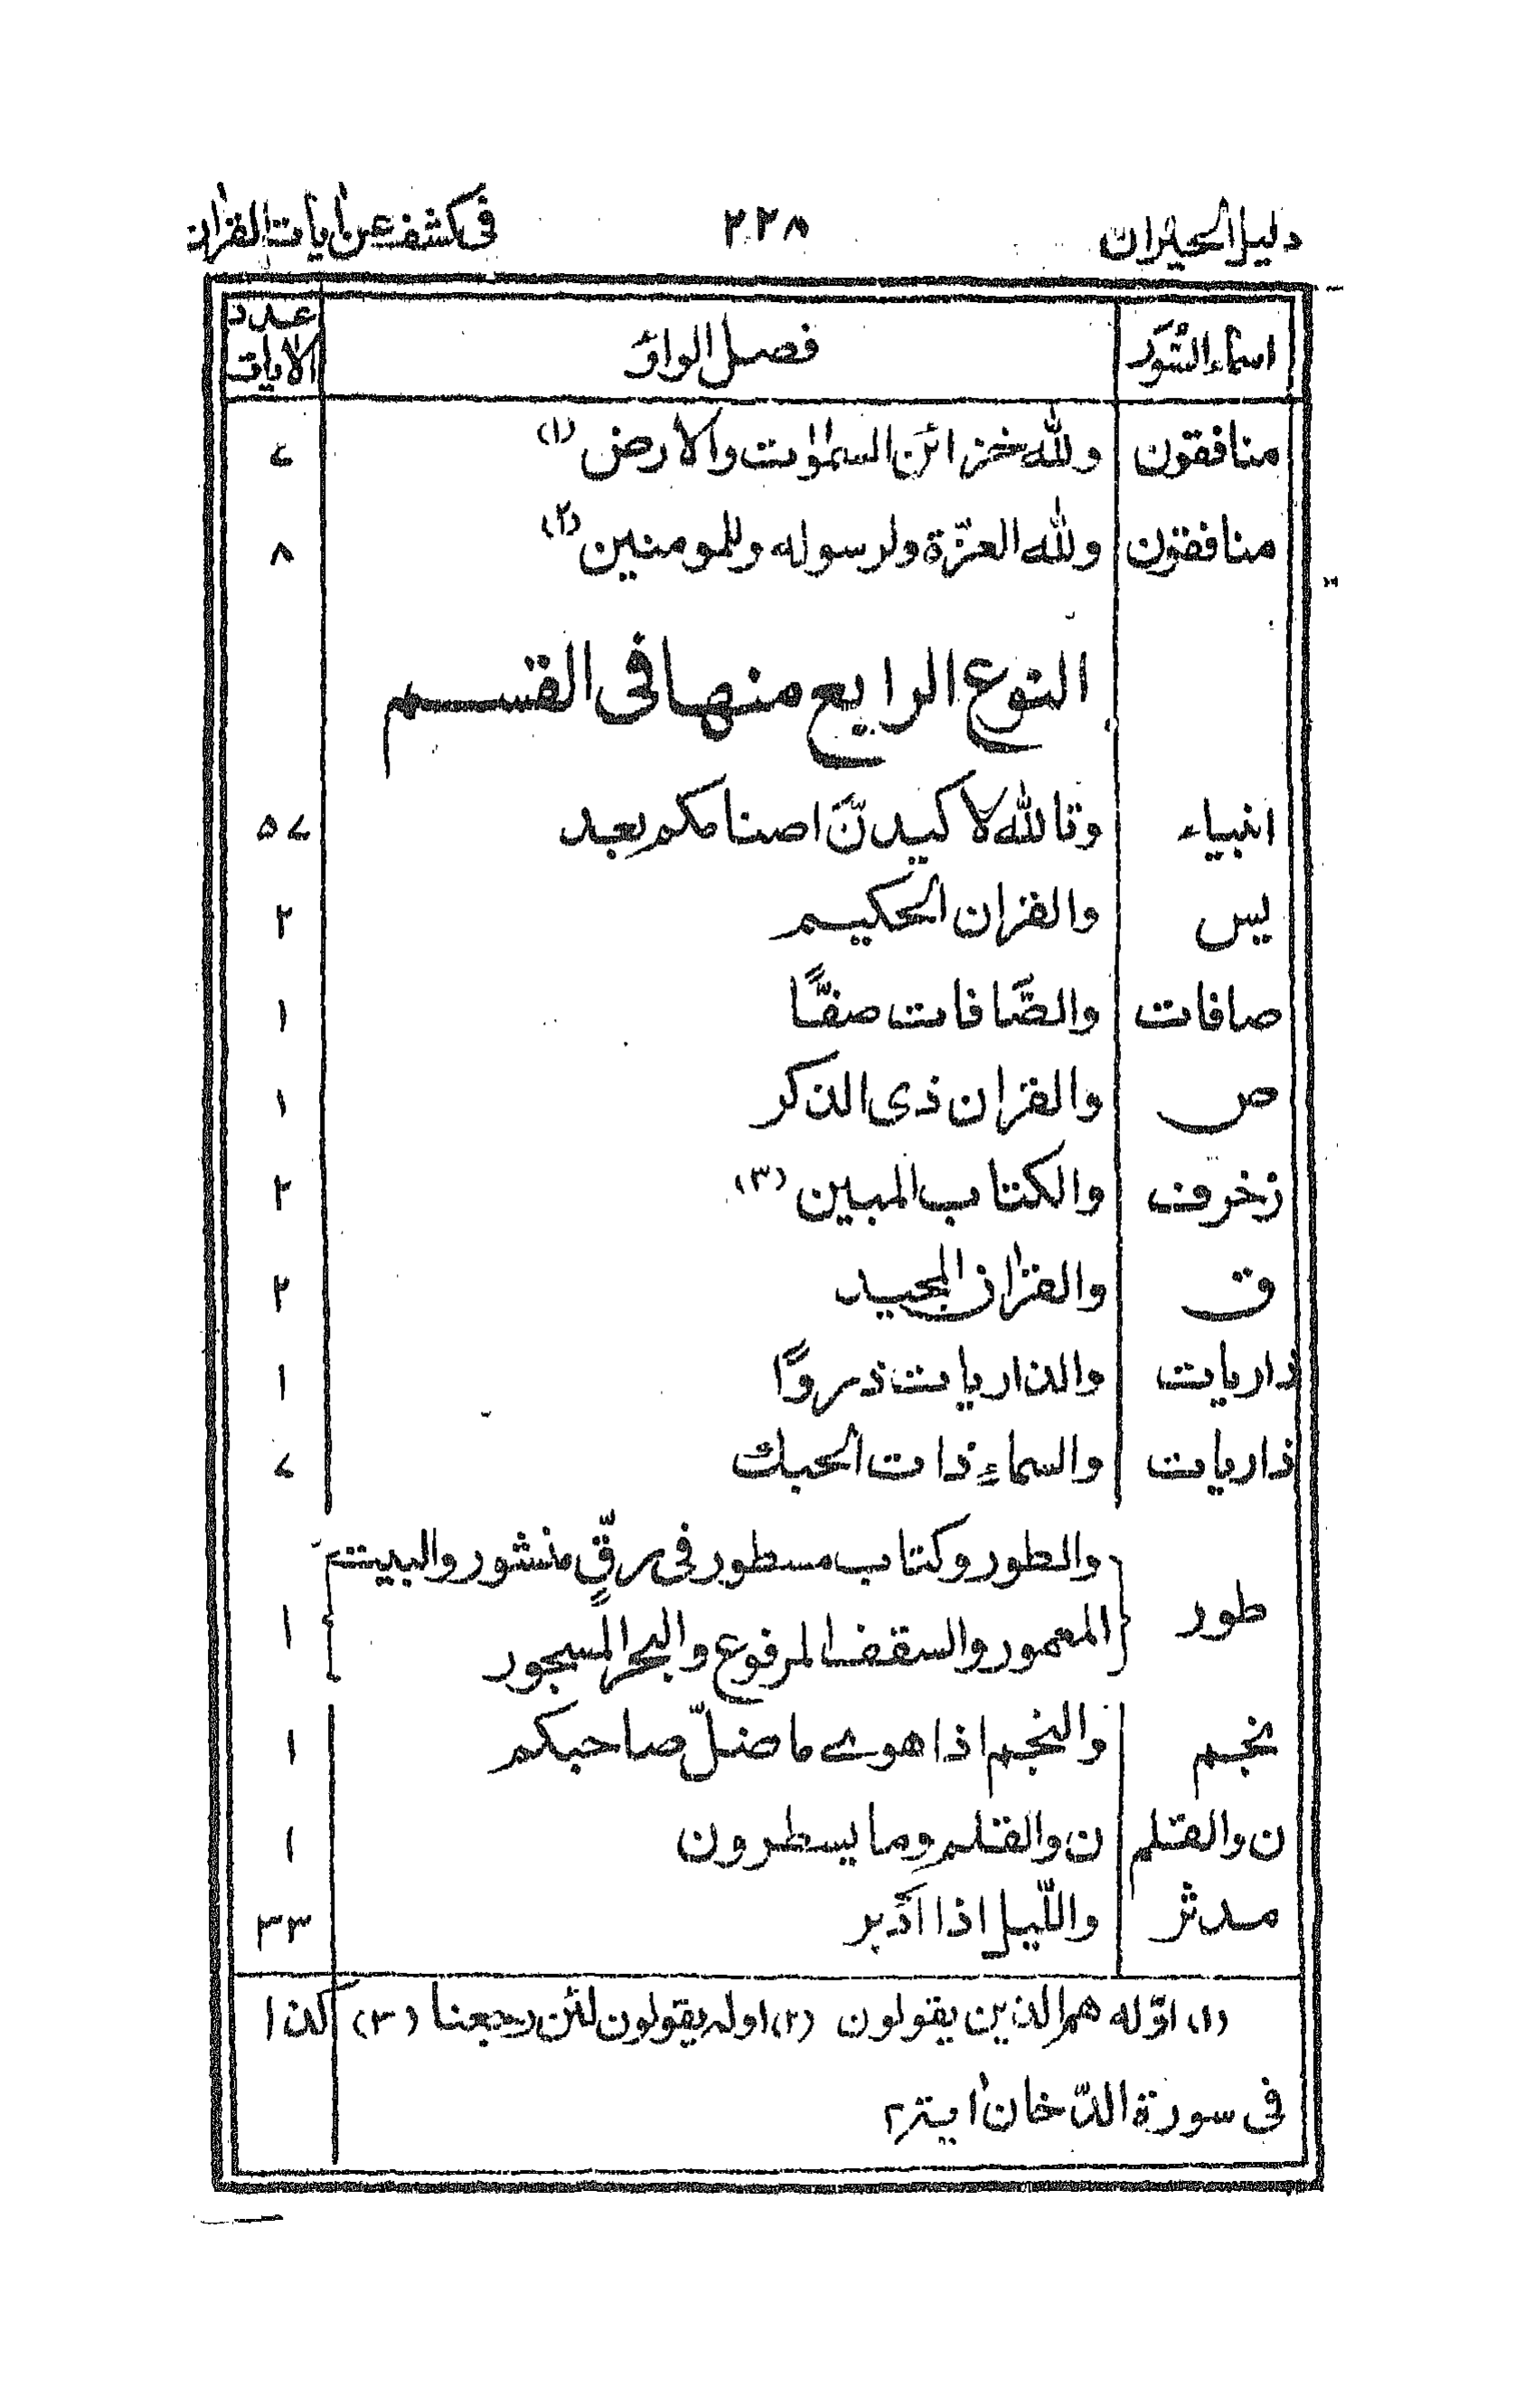 دليل الحيران ٢٢٨ فى كشف عن اٰيات القراٰن
اسماء السُّوَر فصل الواو عدد الاٰيات
منافقون ولله خزائن السمٰوٰت والارض (١) ٧
منافقون ولله العزّة ولرسوله وللمومنين (٢) ٨
النوع الرابع منها فى القسم
انبياء وتالله لاكيدنَّ اصنامكم بعد ٥٧
يس والقران الحكيم ٢
صافات والصَّافات صفًّا ١
ص والقران ذى الذكر ١
زخرف والكتاب المبين (٣) ٢
ق والقراٰن المجيد ٢
ذاريات والذاريات ذروًا ١
ذاريات والسماءِ ذات الحبك ٧
والطور وكتاب مسطور فى رقٍّ منشور والبيت
طور المعمور والسقف المرفوع والبحر المسجور ١
نجم والنجم اذا هوى ما ضلّ صاحبكم ١
ن والقلم ن والقلم وما يسطرون ١
مدثر واللّيل اذا اَدْبر ٣٣
(١) اوّله هم الذين يقولون (٢) اوله يقولون لئن رجعنا (٣) كذا
فى سورة الدّخان اٰية ٢